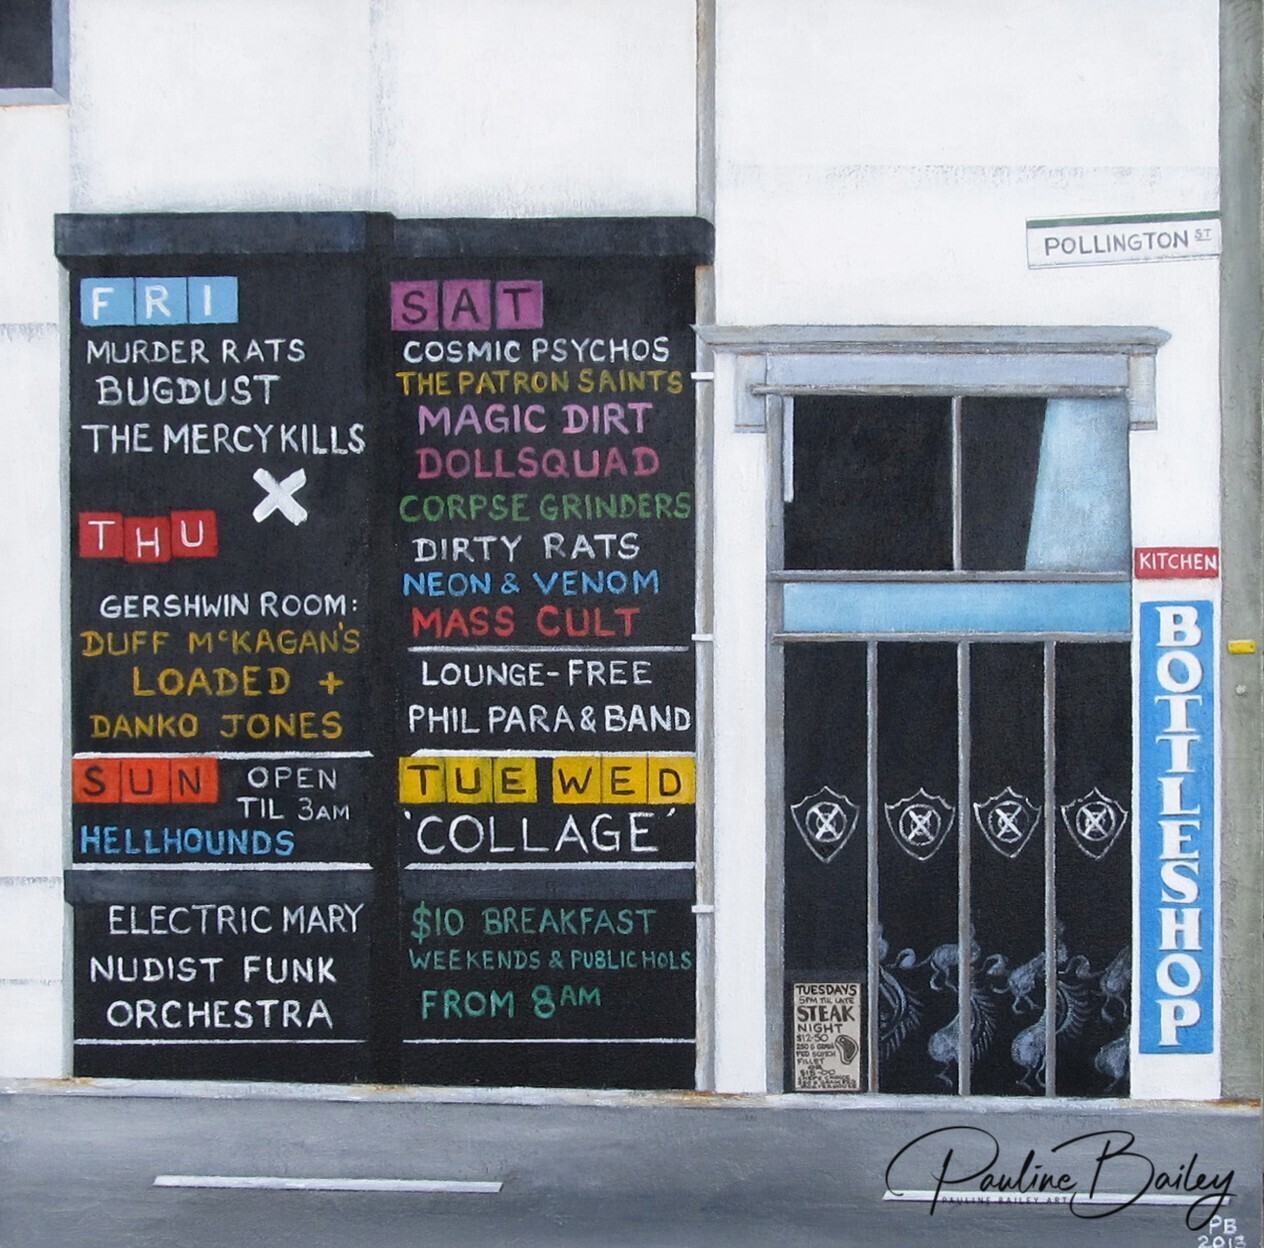 FRI
MURDER RATS
BUGDUST
THE MERCY KILLS
X
THU
GERSHWIN ROOM:
DUFF McKAGAN'S
LOADED +
DANKO JONES
SUN OPEN
TIL 3AM
HELLHOUNDS
ELECTRIC MARY
NUDIST FUNK
ORCHESTRA
SAT
COSMIC PSYCHOS
THE PATRON SAINTS
MAGIC DIRT
DOLLSQUAD
CORPSE GRINDERS
DIRTY RATS
NEON & VENOM
MASS CULT
LOUNGE-FREE
PHIL PARA & BAND
TUE WED
'COLLAGE'
$10 BREAKFAST
WEEKENDS & PUBLIC HOLS
FROM 8AM
POLLINGTON ST
KITCHEN
BOTTLESHOP
TUESDAYS
5PM TIL LATE
STEAK
NIGHT
$12-50
FILLET
OR
$15-00
Pauline Bailey
PAULINE BAILEY ART
PB
2013